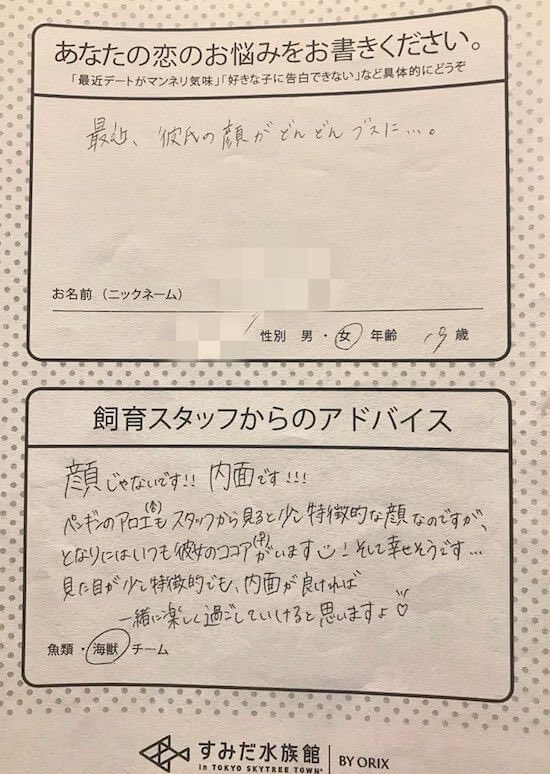 あなたの恋のお悩みをお書きください。
「最近デートがマンネリ気味」「好きな子に告白できない」など具体的にどうぞ
最近、彼氏の顔がどんどんブスに…。
お名前（ニックネーム）
性別 男・女 年齢 19歳
飼育スタッフからのアドバイス
顔じゃないです!! 内面です!!!
ペンギンのアロエ(♂)もスタッフから見ると少し特徴的な顔なのですが、
となりにはいつも彼女のココア(♀)がいます！そして幸せそうです…
見た目が少し特徴的でも、内面が良ければ
一緒に楽しく過ごしていけると思いますよ♡
魚類・海獣チーム
すみだ水族館 BY ORIX
in TOKYO SKYTREE TOWN®